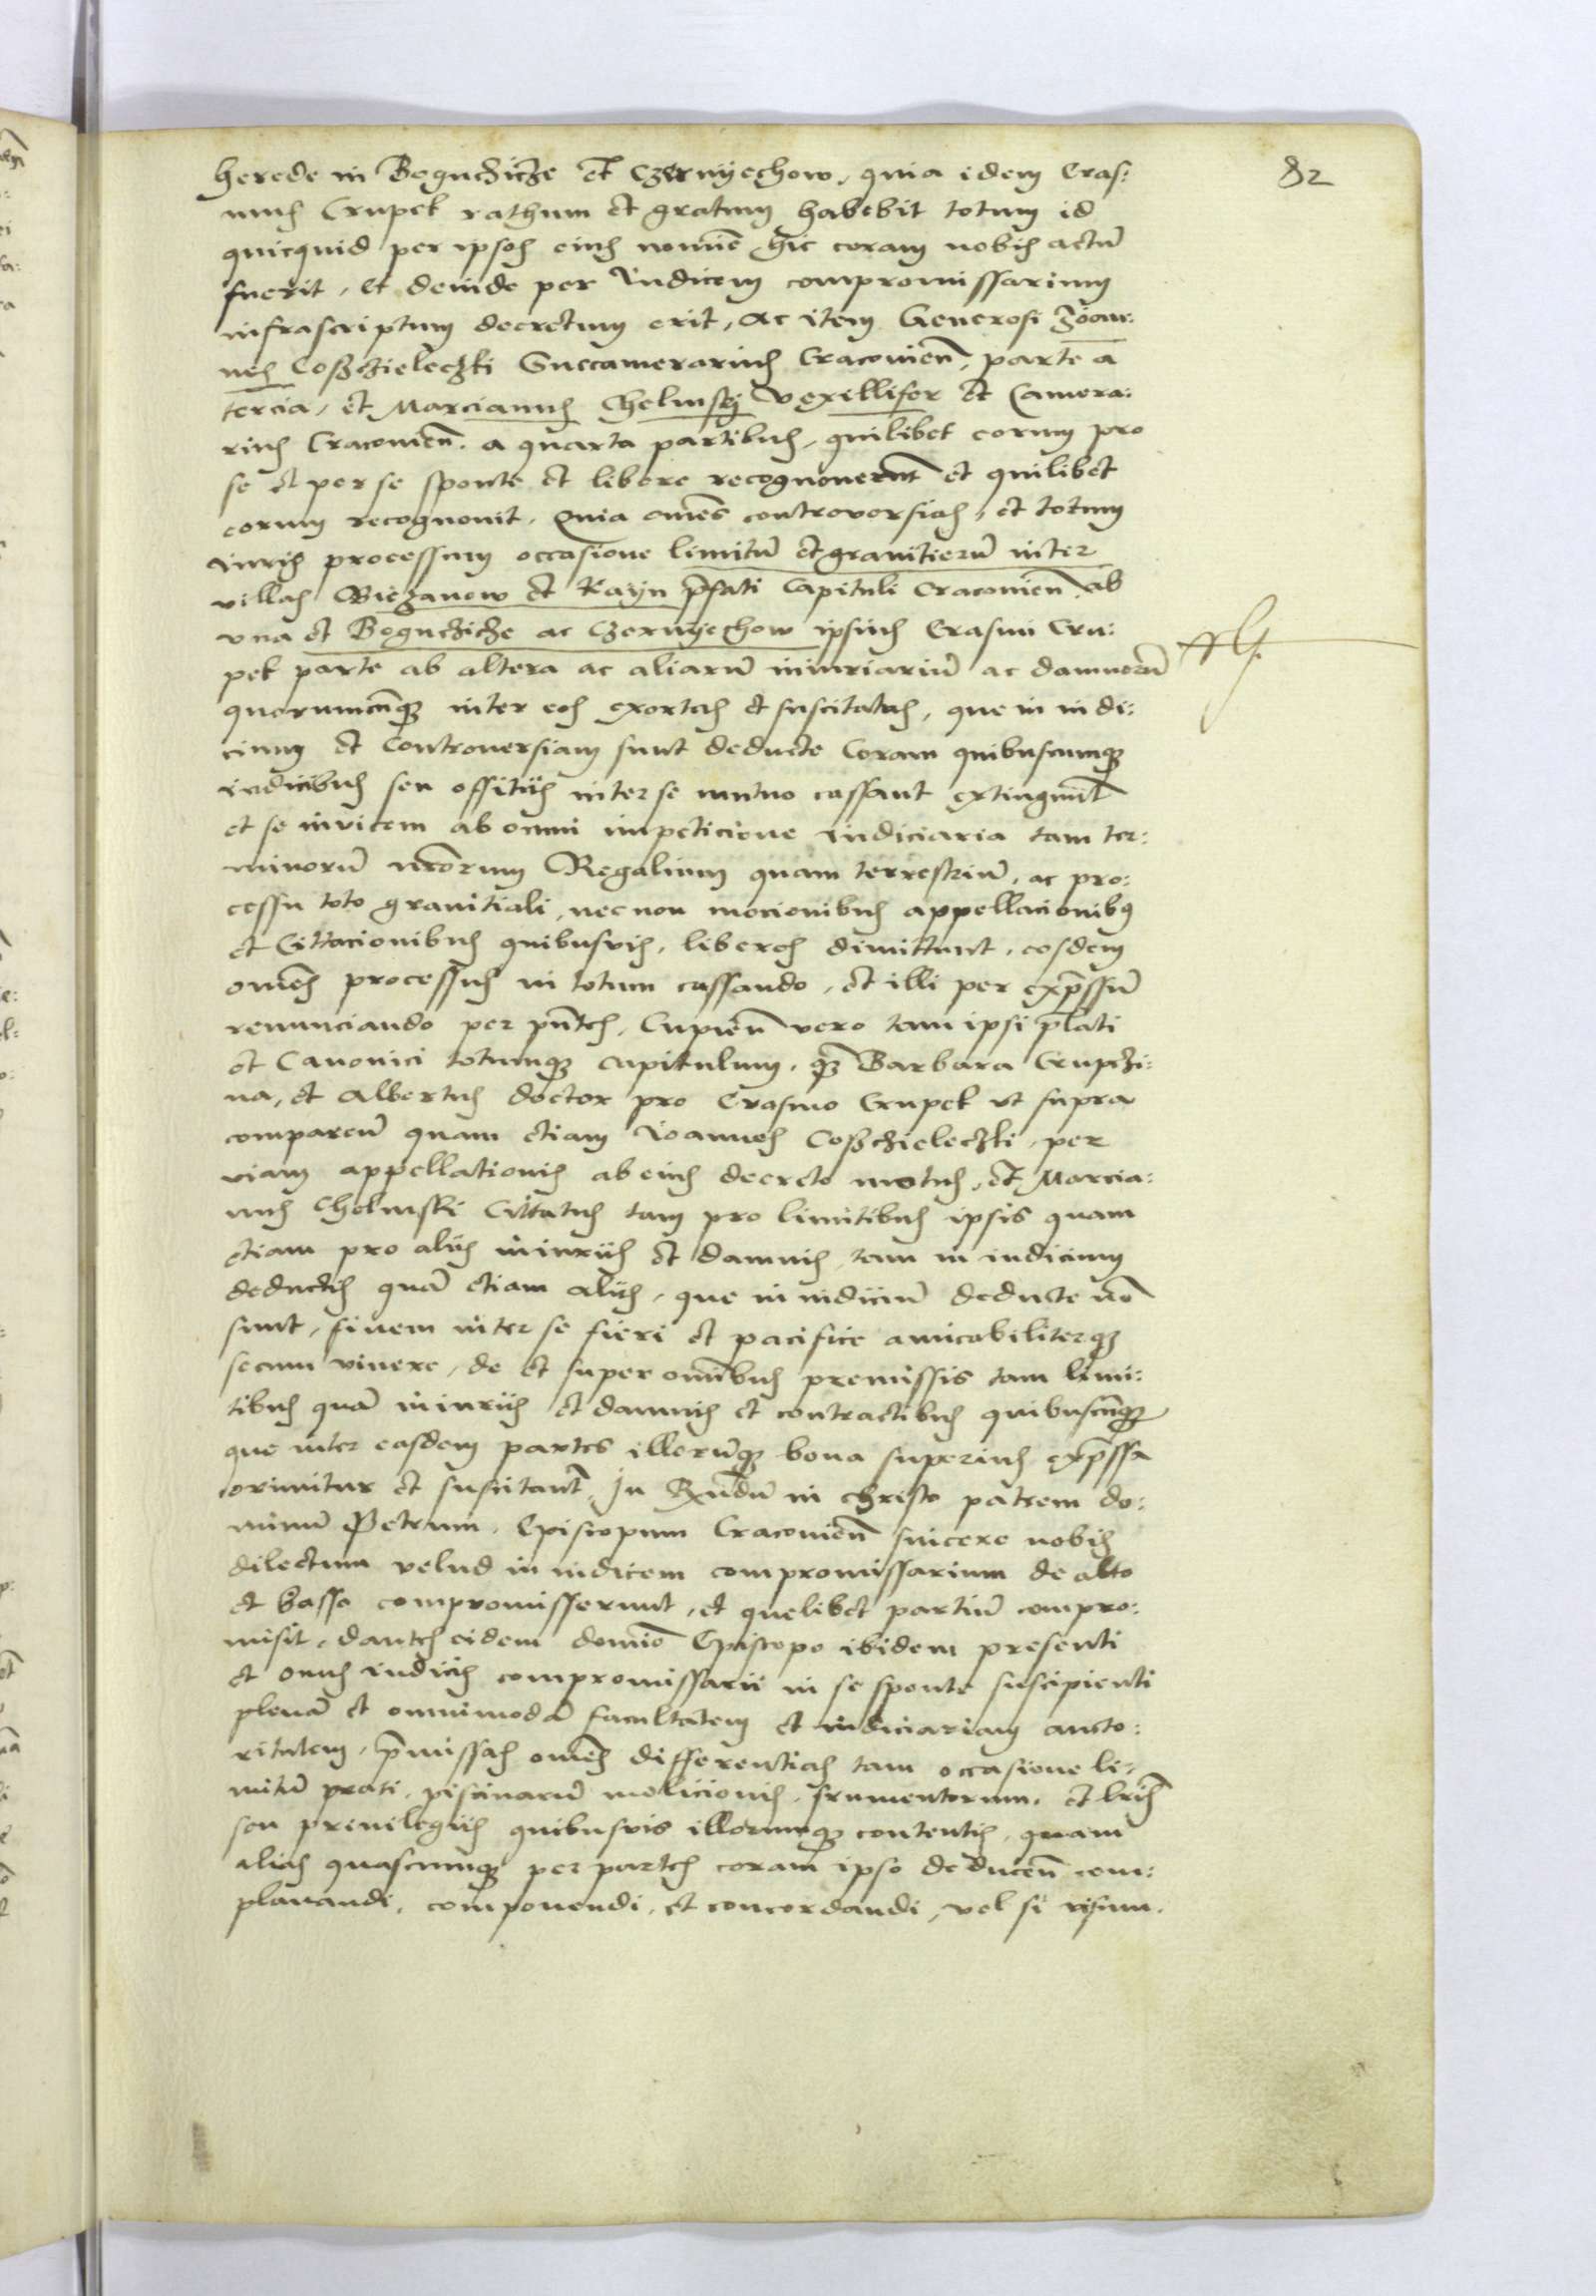 82
herede in Boguczicze et Czernyechow, quia idem Eras:
mus Crupek rathum et gratum habebit totum id
quicquid per ipsos eius nomĩe hic coram nobis actũ
fuerit, et deinde per iudicem compromissarium
infrascriptum decretum erit, ac item Generosi Joan:
nes Cosczieleczki Succamerarius Cracovieñ, parte a
tercia, et Marcianus Chelmsky vexillifer et Camera:
rius Cracovieñ. a quarta partibus, quilibet eorum pro
se et per se sponte et libere recognoverunt et quilibet
eorum recognovit. Quia om̃es controversias, et totum
iuris processum occasione limitũ et granitierũ inter
villas Biezanow et Kayn p̃fati Capituli Cracovieñ ab
vna et Boguczicze ac Czernyechow ipsius Erasmi Cru:
pek parte ab altera ac aliarũ iniuriarũ ac damnorũ
quorumcũq3 inter eos exortas et suscitatas, que in iudi:
cium et controversiam sunt deducte coram quibuscumq3
iudicibus seu offitiis inter se mutuo cassant extingunt̃
et se invicem ab omni impeticione iudiciaria tam ter:
minorũ nr̃orum Regalium quam terrestriũ, ac pro:
cessu toto granitiali, nec non mocionibus appellacionibus
et Cittacionibus quibusvis, liberos dimittunt, eosdem
om̃es processus in totum cassando, et illi per exp̃ssũ
renunciando per pñtes. Cupieñ vero tam ipsi p̃lati
et Canonici totumq3 capitulum, q̃3 Barbara Crupczi:
na, et Albertus doctor pro Erasmo Crupek ut supra
compareñ quam etiam Joannes Cosczieleczki, per
viam appellationis ab eius decreto motus, et Marcia:
nus Chelmski Cittatus tam pro limitibus ipsis quam
etiam pro aliis iniuriis et damnis, tam in iudicium
deductis quã etiam aliis, que in iudiciũ deducte nõ
sunt, finem inter se fieri et pacifice amicabiliterq3
secum vivere, de et super om̃ibus premissis tam limi:
tibus quã iniuriis et damnis et contractibus quibuscũq3
que inter easdem partes illorũq3 bona superius exp̃ssa
oriuntur et suscitant̃. In Rñdũ in christo patrem do:
minũ Petrum Episcopum Cracovieñ sincere nobis
dilectum velud in iudicem compromissarium de alto
et basso compromisserunt, et quelibet partiũ compro:
misit, dantes eidem domĩo Episcopo ibidem presenti
et onus iudicis compromissarii in se sponte suscipienti
plenã et omnimodã facultatem et iudiciariam aucto:
ritatem, p̃missas om̃es differentias tam occasione li:
mitũ prati, piscinarũ molicionis, frumentorum, et lr̃is
seu previlegiis quibusvis illorumq3 contentis, quam
alias quascumq3 per partes coram ipso deduceñ com:
planandi, componendi, et concordandi, vel si visum.